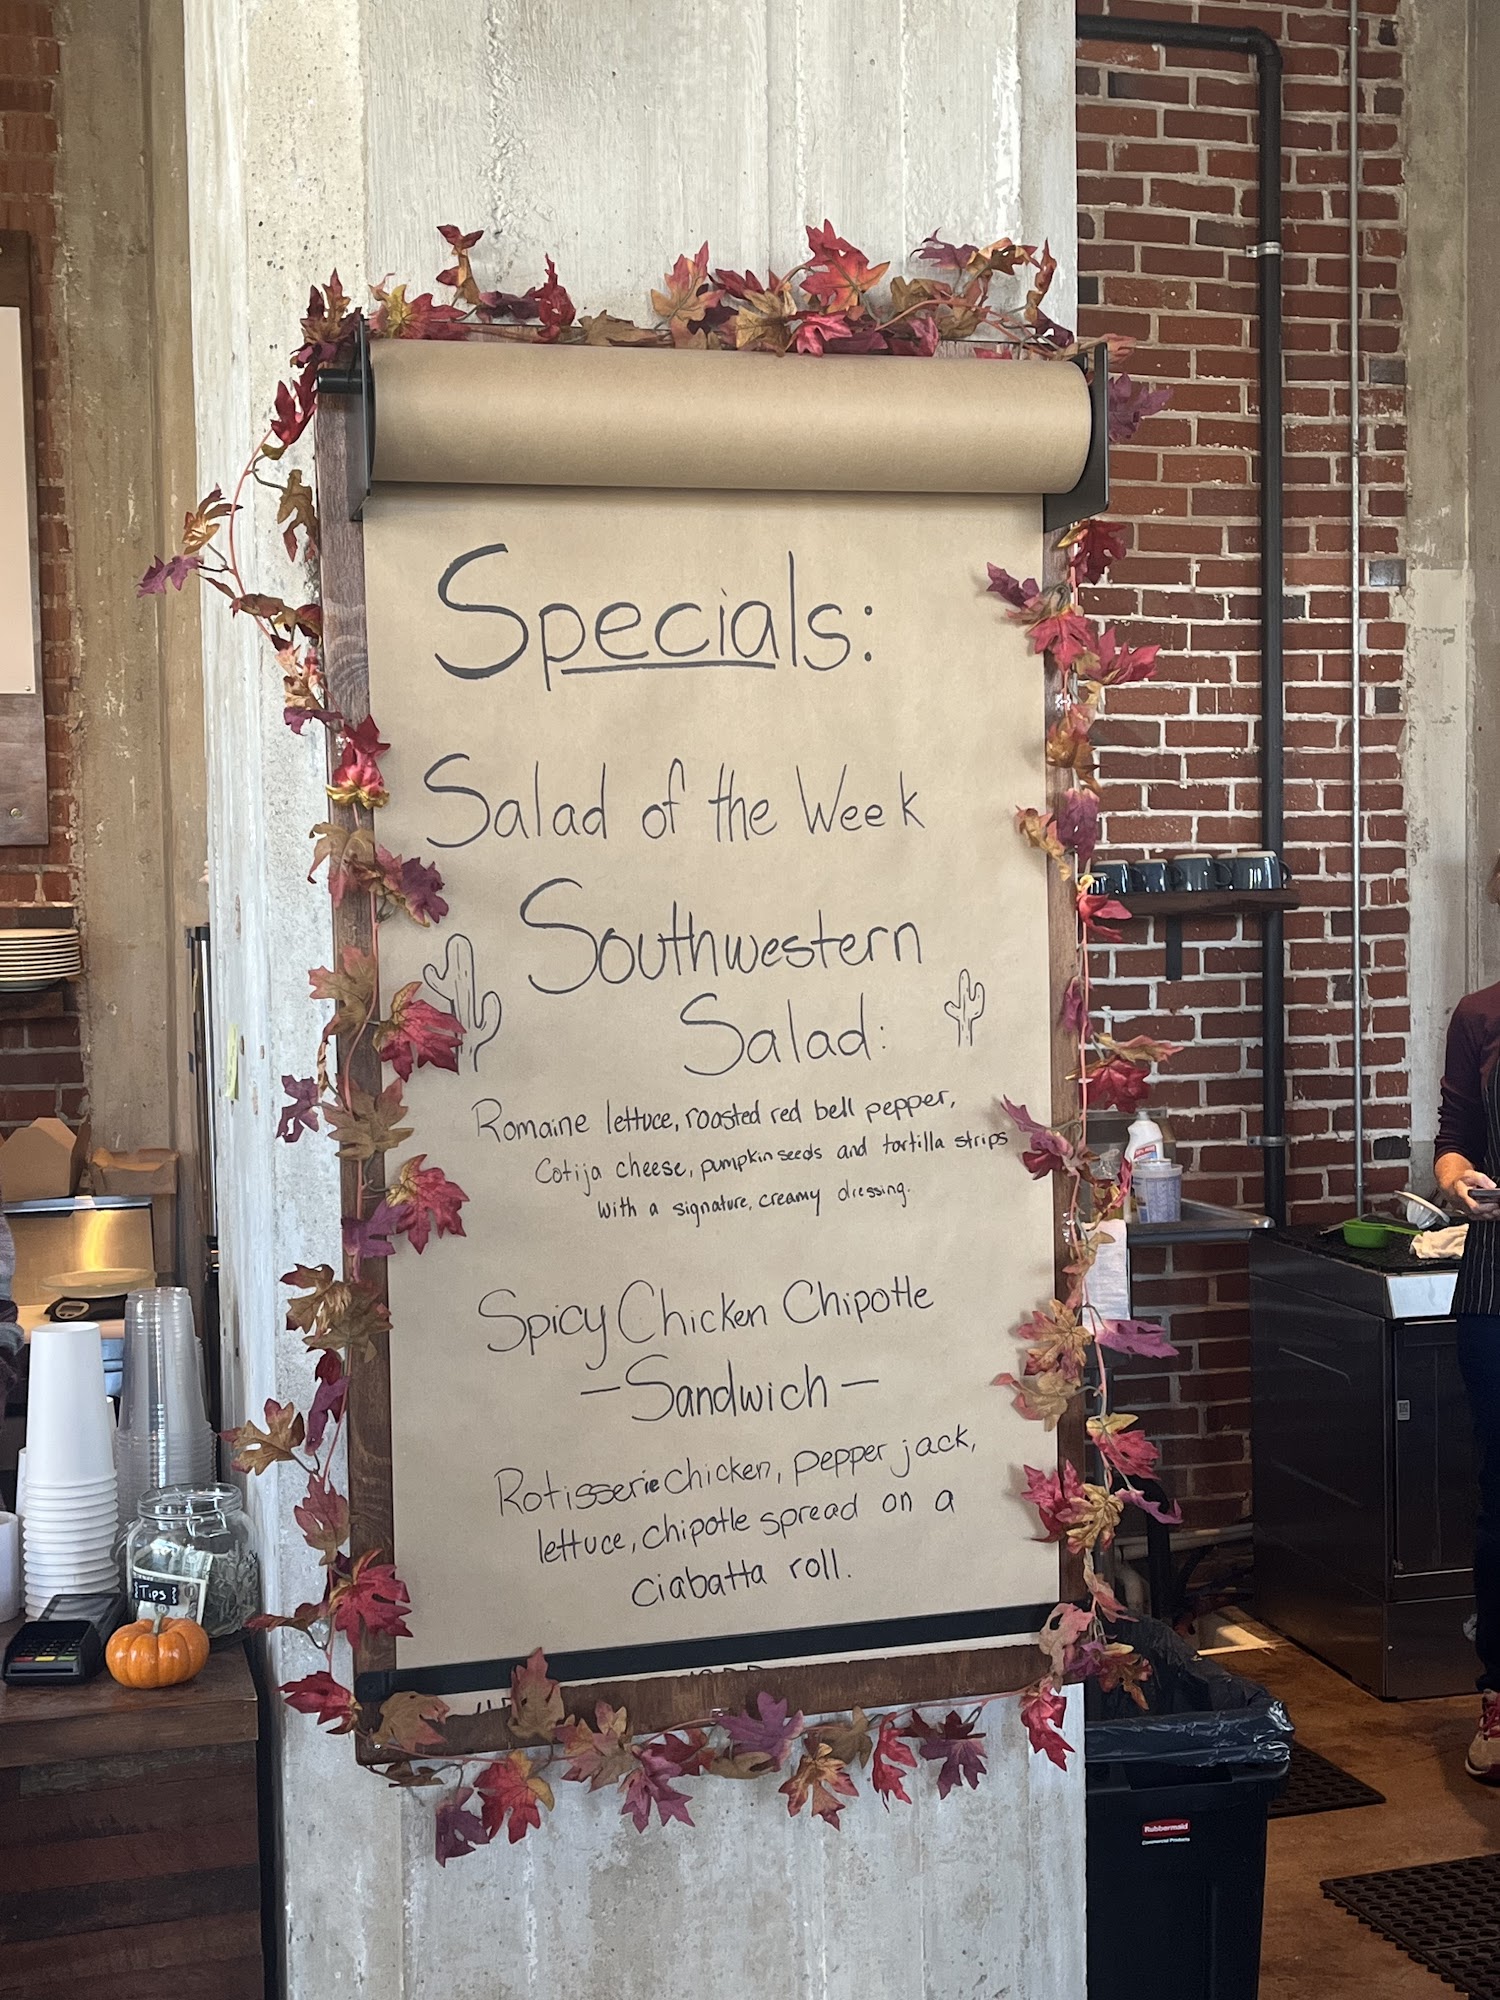 Specials:
Salad of the Week
Southwestern
Salad:
Romaine lettuce, roasted red bell pepper,
Cotija cheese, pumpkin seeds and tortilla strips
with a signature, creamy dressing.
Spicy Chicken Chipotle
- Sandwich -
Rotisserie chicken, pepper jack,
lettuce, chipotle spread on a
ciabatta roll.
Tips
Rubbermaid
Commercial Products